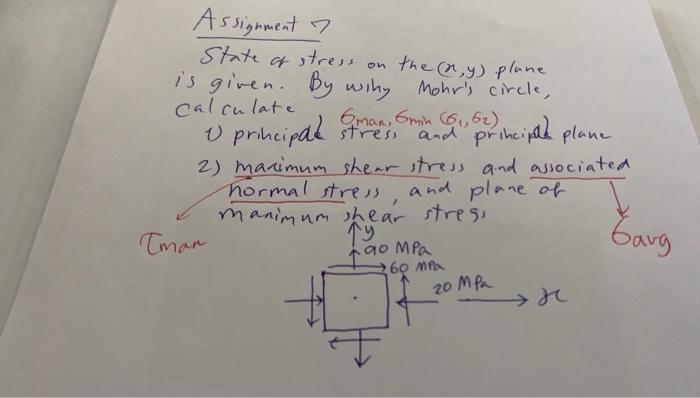 Assignment 7
State of stress on the (x,y) plane
is given. By using Mohr's circle,
calculate
σmax, σmin (σ1, σ2)
1) principal stress and principal plane
2) maximum shear stress and associated
normal stress, and plane of
maximum shear stress
τmax
σavg
y
90 MPa
60 MPa
20 MPa
x